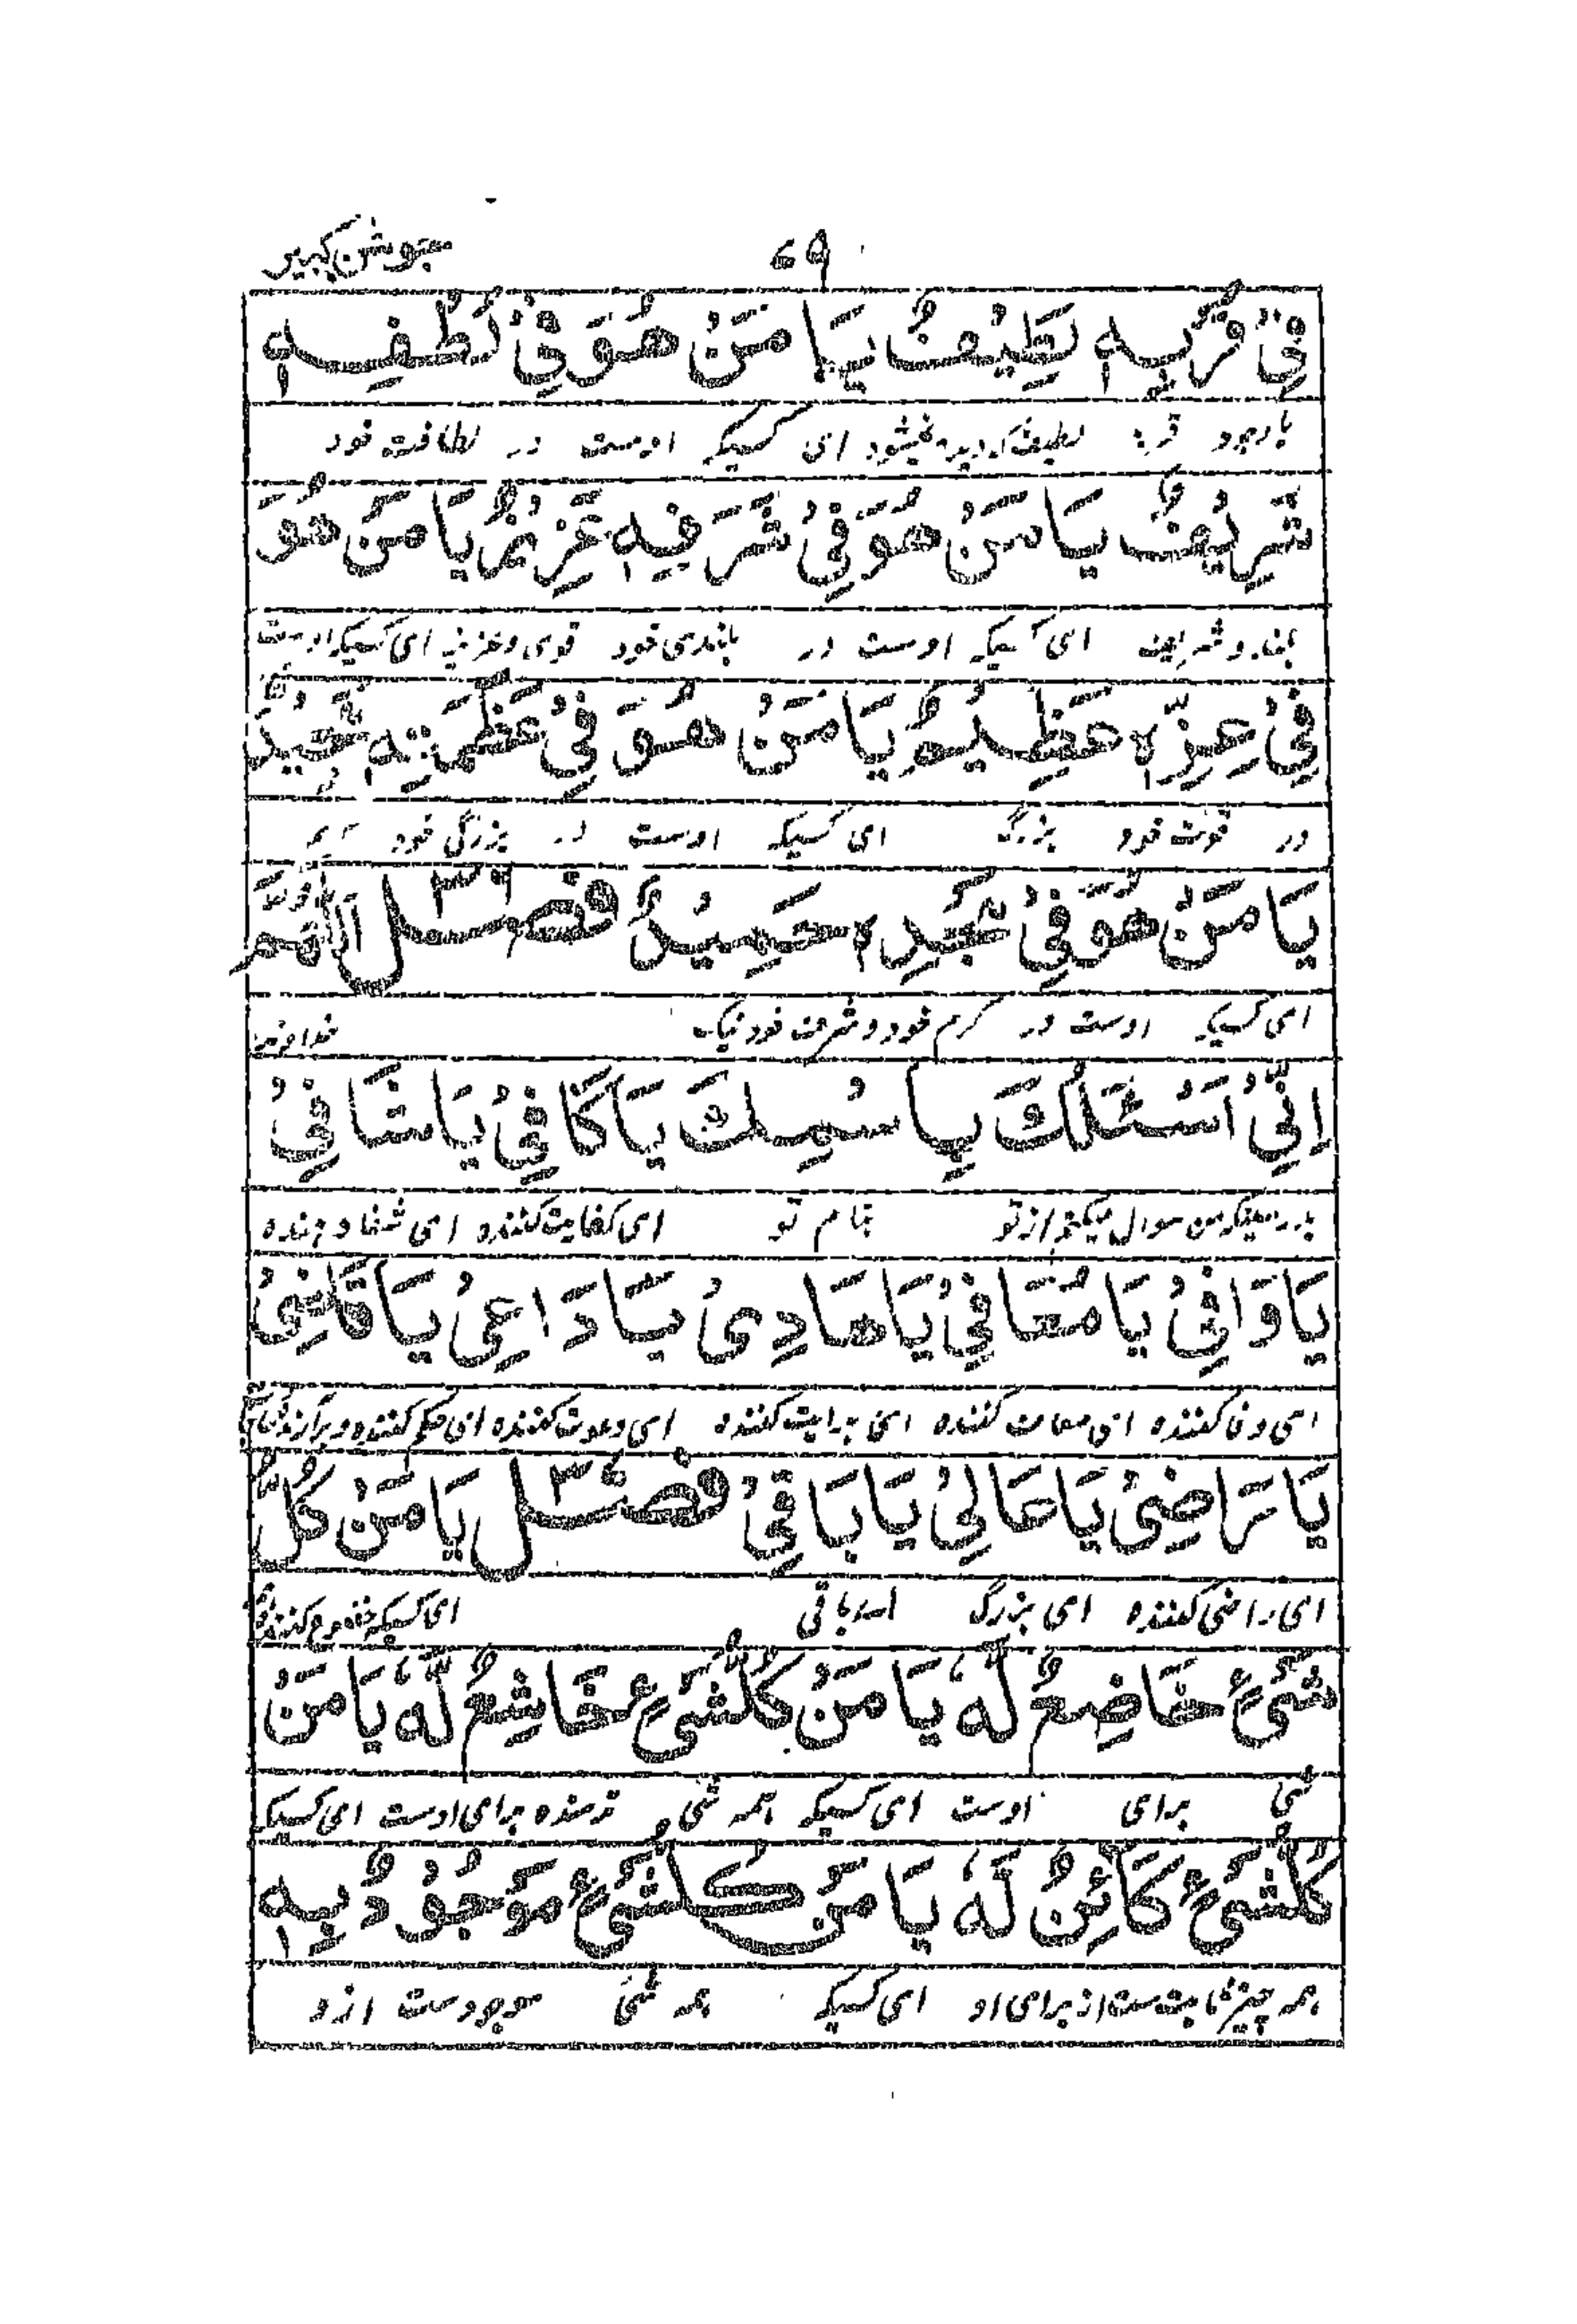 ۶۹ جوشن کبیر
فِیْ قُرْبِهٖ لَطِیْفٌ یَا مَنْ هُوَ فِیْ لُطْفِهٖ
باوجود قرب لطیف که دیده نمیشود ای کسیکه اوست در لطافت خود
شَرِیْفٌ یَا مَنْ هُوَ فِیْ شَرَفِهٖ عَزِیْزٌ یَا مَنْ هُوَ
و شریف ای کسیکه اوست در بلندی خود قوی و عزیز ای کسیکه اوست
فِیْ عِزِّهٖ عَظِیْمٌ یَا مَنْ هُوَ فِیْ عَظَمَتِهٖ مَجِیْدٌ
در قوت خود بزرگ ای کسیکه اوست در بزرگی خود
یَا مَنْ هُوَ فِیْ مَجْدِهٖ حَمِیْدٌ فصل ۳۶ اَللّٰهُمَّ
ای کسیکه اوست در کرم خود و شرف خود نیک خداوندا
اِنِّیْ اَسْئَلُكَ بِاسْمِكَ یَا كَافِیْ یَا شَافِیْ
بدرستیکه من سوال میکنم از تو بنام تو ای کفایت کننده ای شفا دهنده
یَا وَافِیْ یَا مُعَافِیْ یَا هَادِیْ یَا دَاعِیْ یَا قَاضِیْ
ای وفا کننده ای معاف کننده ای هدایت کننده ای دعوت کننده ای حکم کننده و برآرنده
یَا رَاضِیْ یَا عَالِیْ یَا بَاقِیْ فصل ۳۷ یَا مَنْ كُلُّ
ای راضی کننده ای بزرگ ای باقی ای کسیکه خضوع کننده
شَیْءٍ خَاضِعٌ لَهٗ یَا مَنْ كُلُّ شَیْءٍ خَاشِعٌ لَهٗ یَا مَنْ
شی برای اوست ای کسیکه همه شی ترسنده برای اوست ای کسیکه
كُلُّ شَیْءٍ كَائِنٌ لَهٗ یَا مَنْ كُلُّ شَیْءٍ مَوْجُوْدٌ بِهٖ
همه چیز ثابت ست از برای او ای کسیکه همه شی موجود ست از و